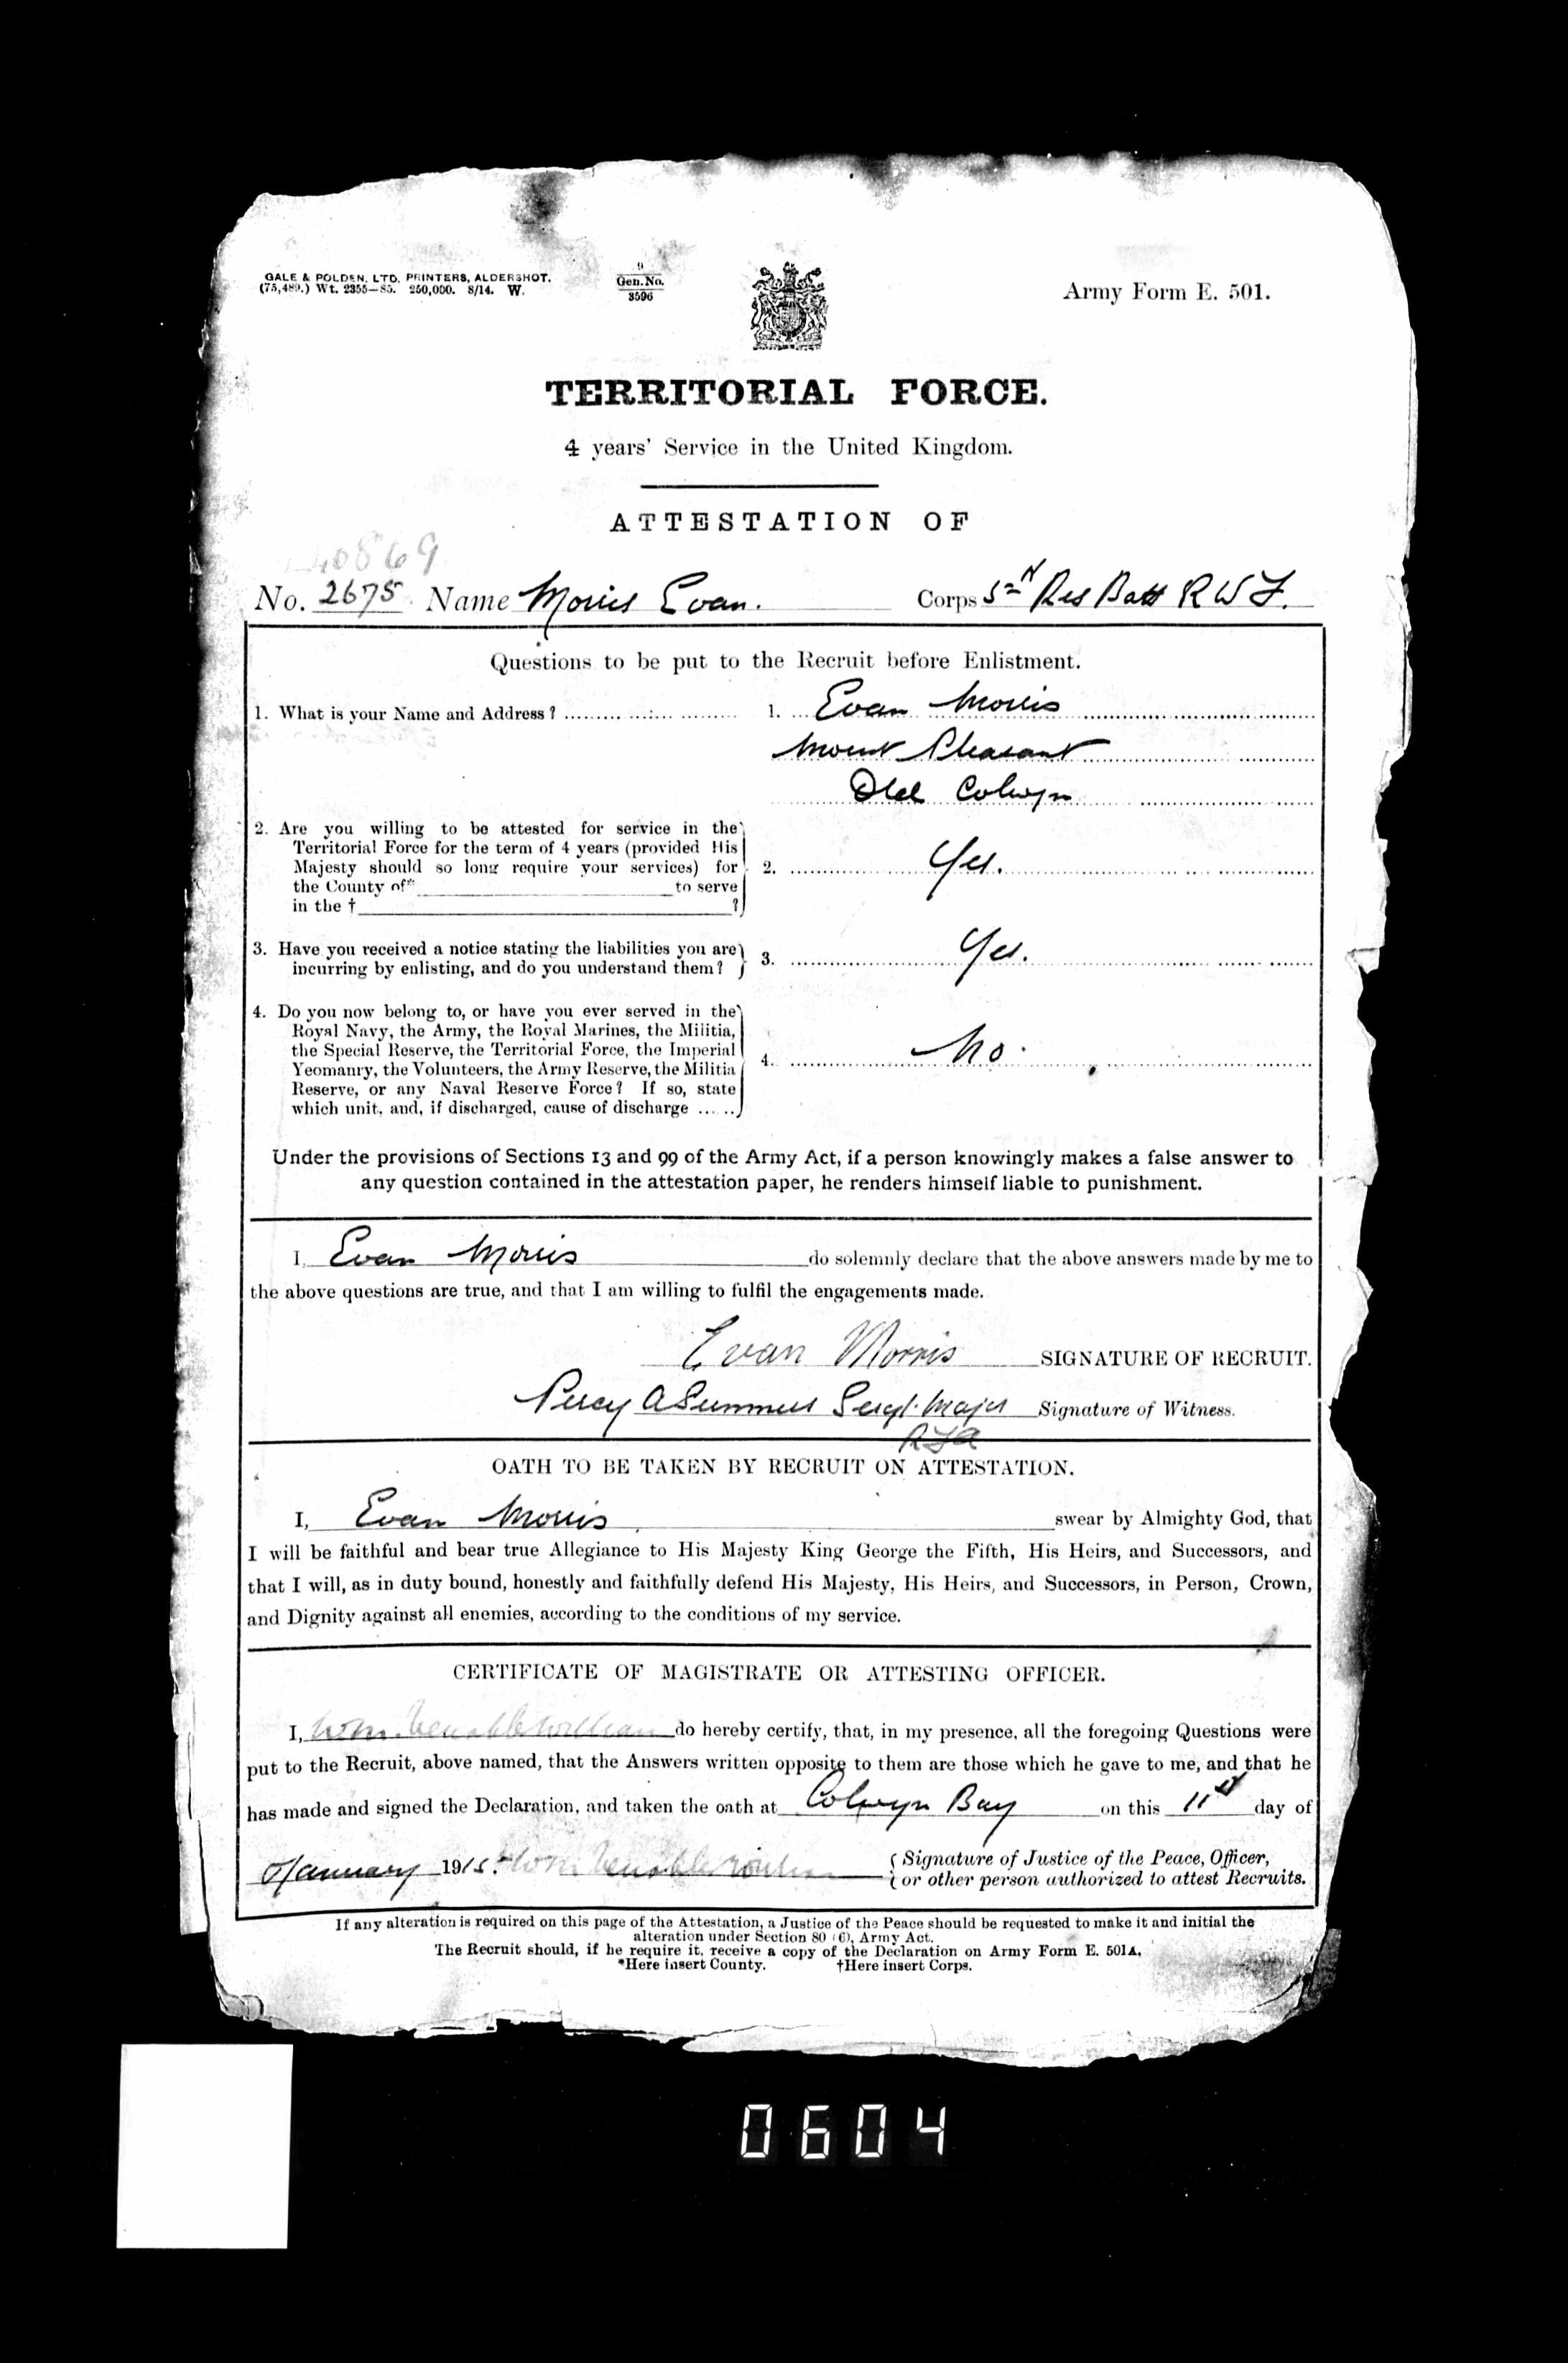 GALE & POLDEN, LTD. PRINTERS, ALDERSHOT.
(75,489.) Wt. 2355—85. 250,000. 8/14. W.
9
Gen. No.
3596
Army Form E. 501.
TERRITORIAL FORCE.
4 years' Service in the United Kingdom.
ATTESTATION OF
40869
No. 2675 Name Morris Evan. Corps 5th Res Batt R W F.
Questions to be put to the Recruit before Enlistment.
1. What is your Name and Address? 1. Evan Morris
Mount Pleasant
Old Colwyn
2. Are you willing to be attested for service in the
Territorial Force for the term of 4 years (provided His
Majesty should so long require your services) for 2. Yes.
the County of* to serve
in the † ?
3. Have you received a notice stating the liabilities you are
incurring by enlisting, and do you understand them? 3. Yes.
4. Do you now belong to, or have you ever served in the
Royal Navy, the Army, the Royal Marines, the Militia,
the Special Reserve, the Territorial Force, the Imperial
Yeomanry, the Volunteers, the Army Reserve, the Militia 4. No.
Reserve, or any Naval Reserve Force? If so, state
which unit, and, if discharged, cause of discharge
Under the provisions of Sections 13 and 99 of the Army Act, if a person knowingly makes a false answer to
any question contained in the attestation paper, he renders himself liable to punishment.
I, Evan Morris do solemnly declare that the above answers made by me to
the above questions are true, and that I am willing to fulfil the engagements made.
Evan Morris SIGNATURE OF RECRUIT.
Percy A Summers Sergt. Major Signature of Witness.
RFA
OATH TO BE TAKEN BY RECRUIT ON ATTESTATION.
I, Evan Morris swear by Almighty God, that
I will be faithful and bear true Allegiance to His Majesty King George the Fifth, His Heirs, and Successors, and
that I will, as in duty bound, honestly and faithfully defend His Majesty, His Heirs, and Successors, in Person, Crown,
and Dignity against all enemies, according to the conditions of my service.
CERTIFICATE OF MAGISTRATE OR ATTESTING OFFICER.
I, Wm. Venable William do hereby certify, that, in my presence, all the foregoing Questions were
put to the Recruit, above named, that the Answers written opposite to them are those which he gave to me, and that he
has made and signed the Declaration, and taken the oath at Colwyn Bay on this 11th day of
January 1915. Wm Venable { Signature of Justice of the Peace, Officer,
{ or other person authorized to attest Recruits.
If any alteration is required on this page of the Attestation, a Justice of the Peace should be requested to make it and initial the
alteration under Section 80 (6), Army Act.
The Recruit should, if he require it, receive a copy of the Declaration on Army Form E. 501A.
*Here insert County. †Here insert Corps.
0604